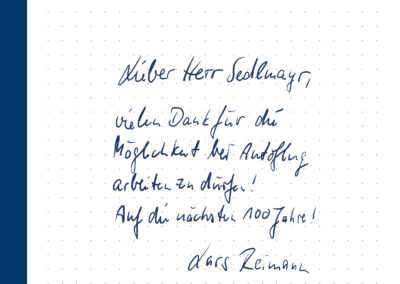 Lieber Herr Sedlmayr,
vielen Dank für die
Möglichkeit bei Autoflug
arbeiten zu dürfen!
Auf die nächsten 100 Jahre!
Lars Reimann